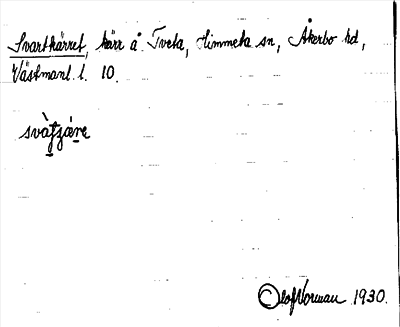 Svartkärret, kärr å Tveta, Himmeta sn, Åkerbo hd,
Västmanl. l. 10.
Olof Norman 1930.